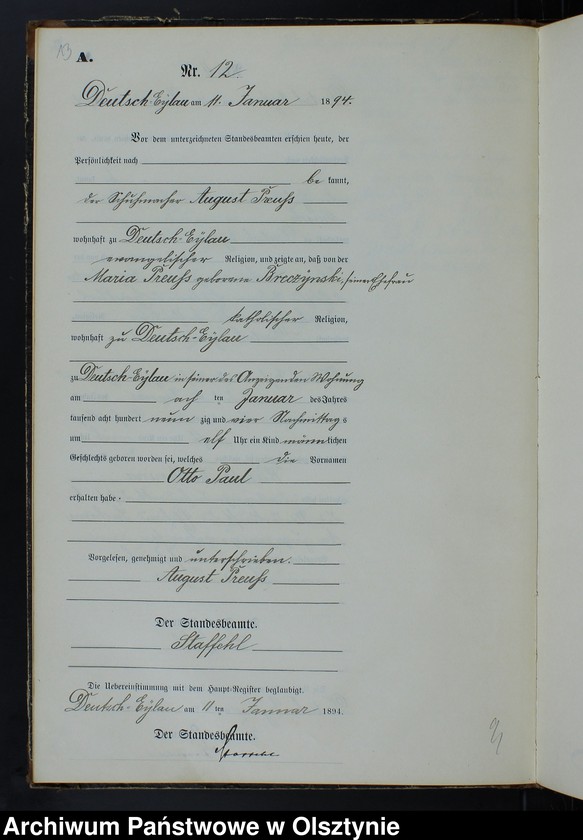 13
A.
Nr. 12.
Deutsch-Eylau am 11. Januar 1894.
Vor dem unterzeichneten Standesbeamten erschien heute, der
Persönlichkeit nach
be kannt,
der Schuhmacher August Preuß
wohnhaft zu Deutsch-Eylau
evangelischer Religion, und zeigte an, daß von der
Maria Preuß geborene Breczynski, seiner Ehefrau
katholischer Religion,
wohnhaft zu Deutsch-Eylau
zu Deutsch-Eylau in seiner des Anzeigenden Wohnung
am ach ten Januar des Jahres
tausend acht hundert neun zig und vier Nachmittag s
um elf Uhr ein Kind männ lichen
Geschlechts geboren worden sei, welches die Vornamen
Otto Paul
erhalten habe.
Vorgelesen, genehmigt und unterschrieben.
August Preuß
Der Standesbeamte.
Staffehl
Die Uebereinstimmung mit dem Haupt-Register beglaubigt.
Deutsch-Eylau am 11 ten Januar 1894.
Der Standesbeamte.
Staffehl
Archiwum Państwowe w Olsztynie